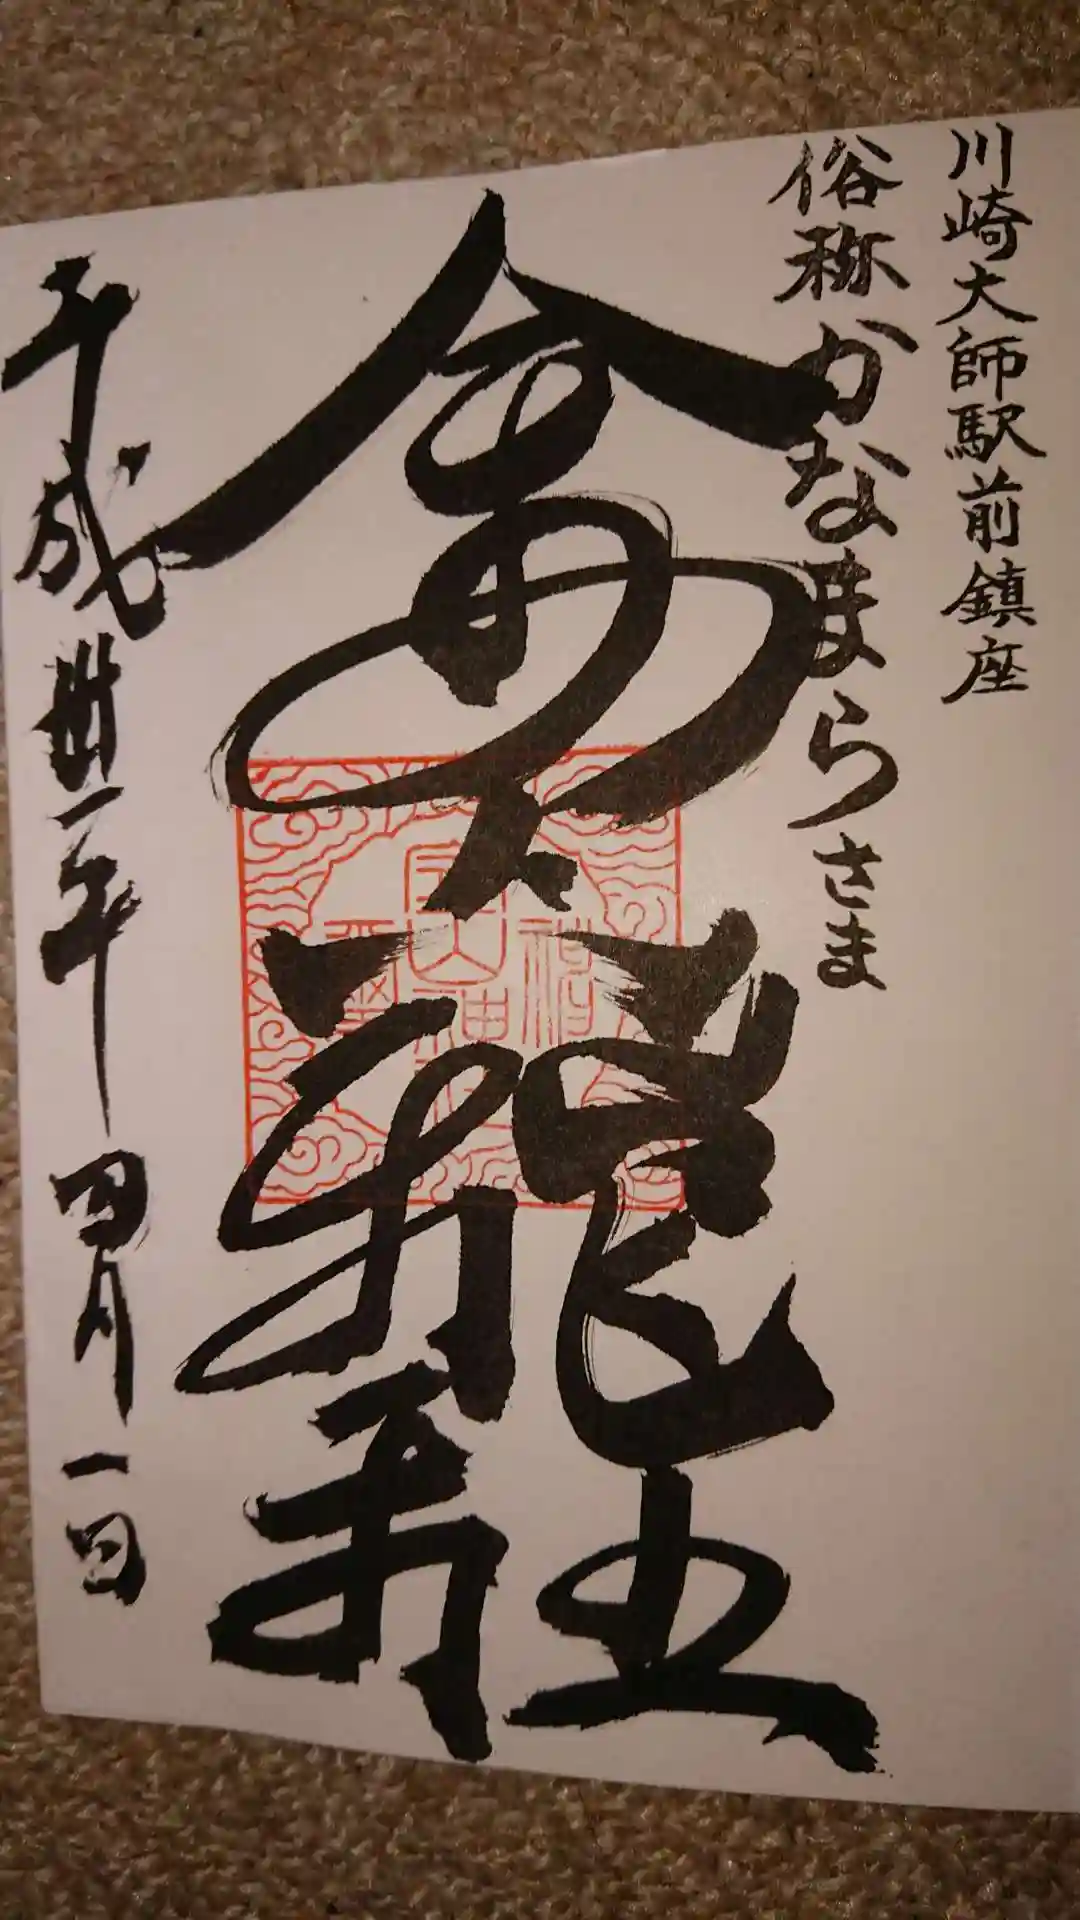 川崎大師駅前鎮座
俗称かなまらさま
金山神社
平成卅一年四月一日